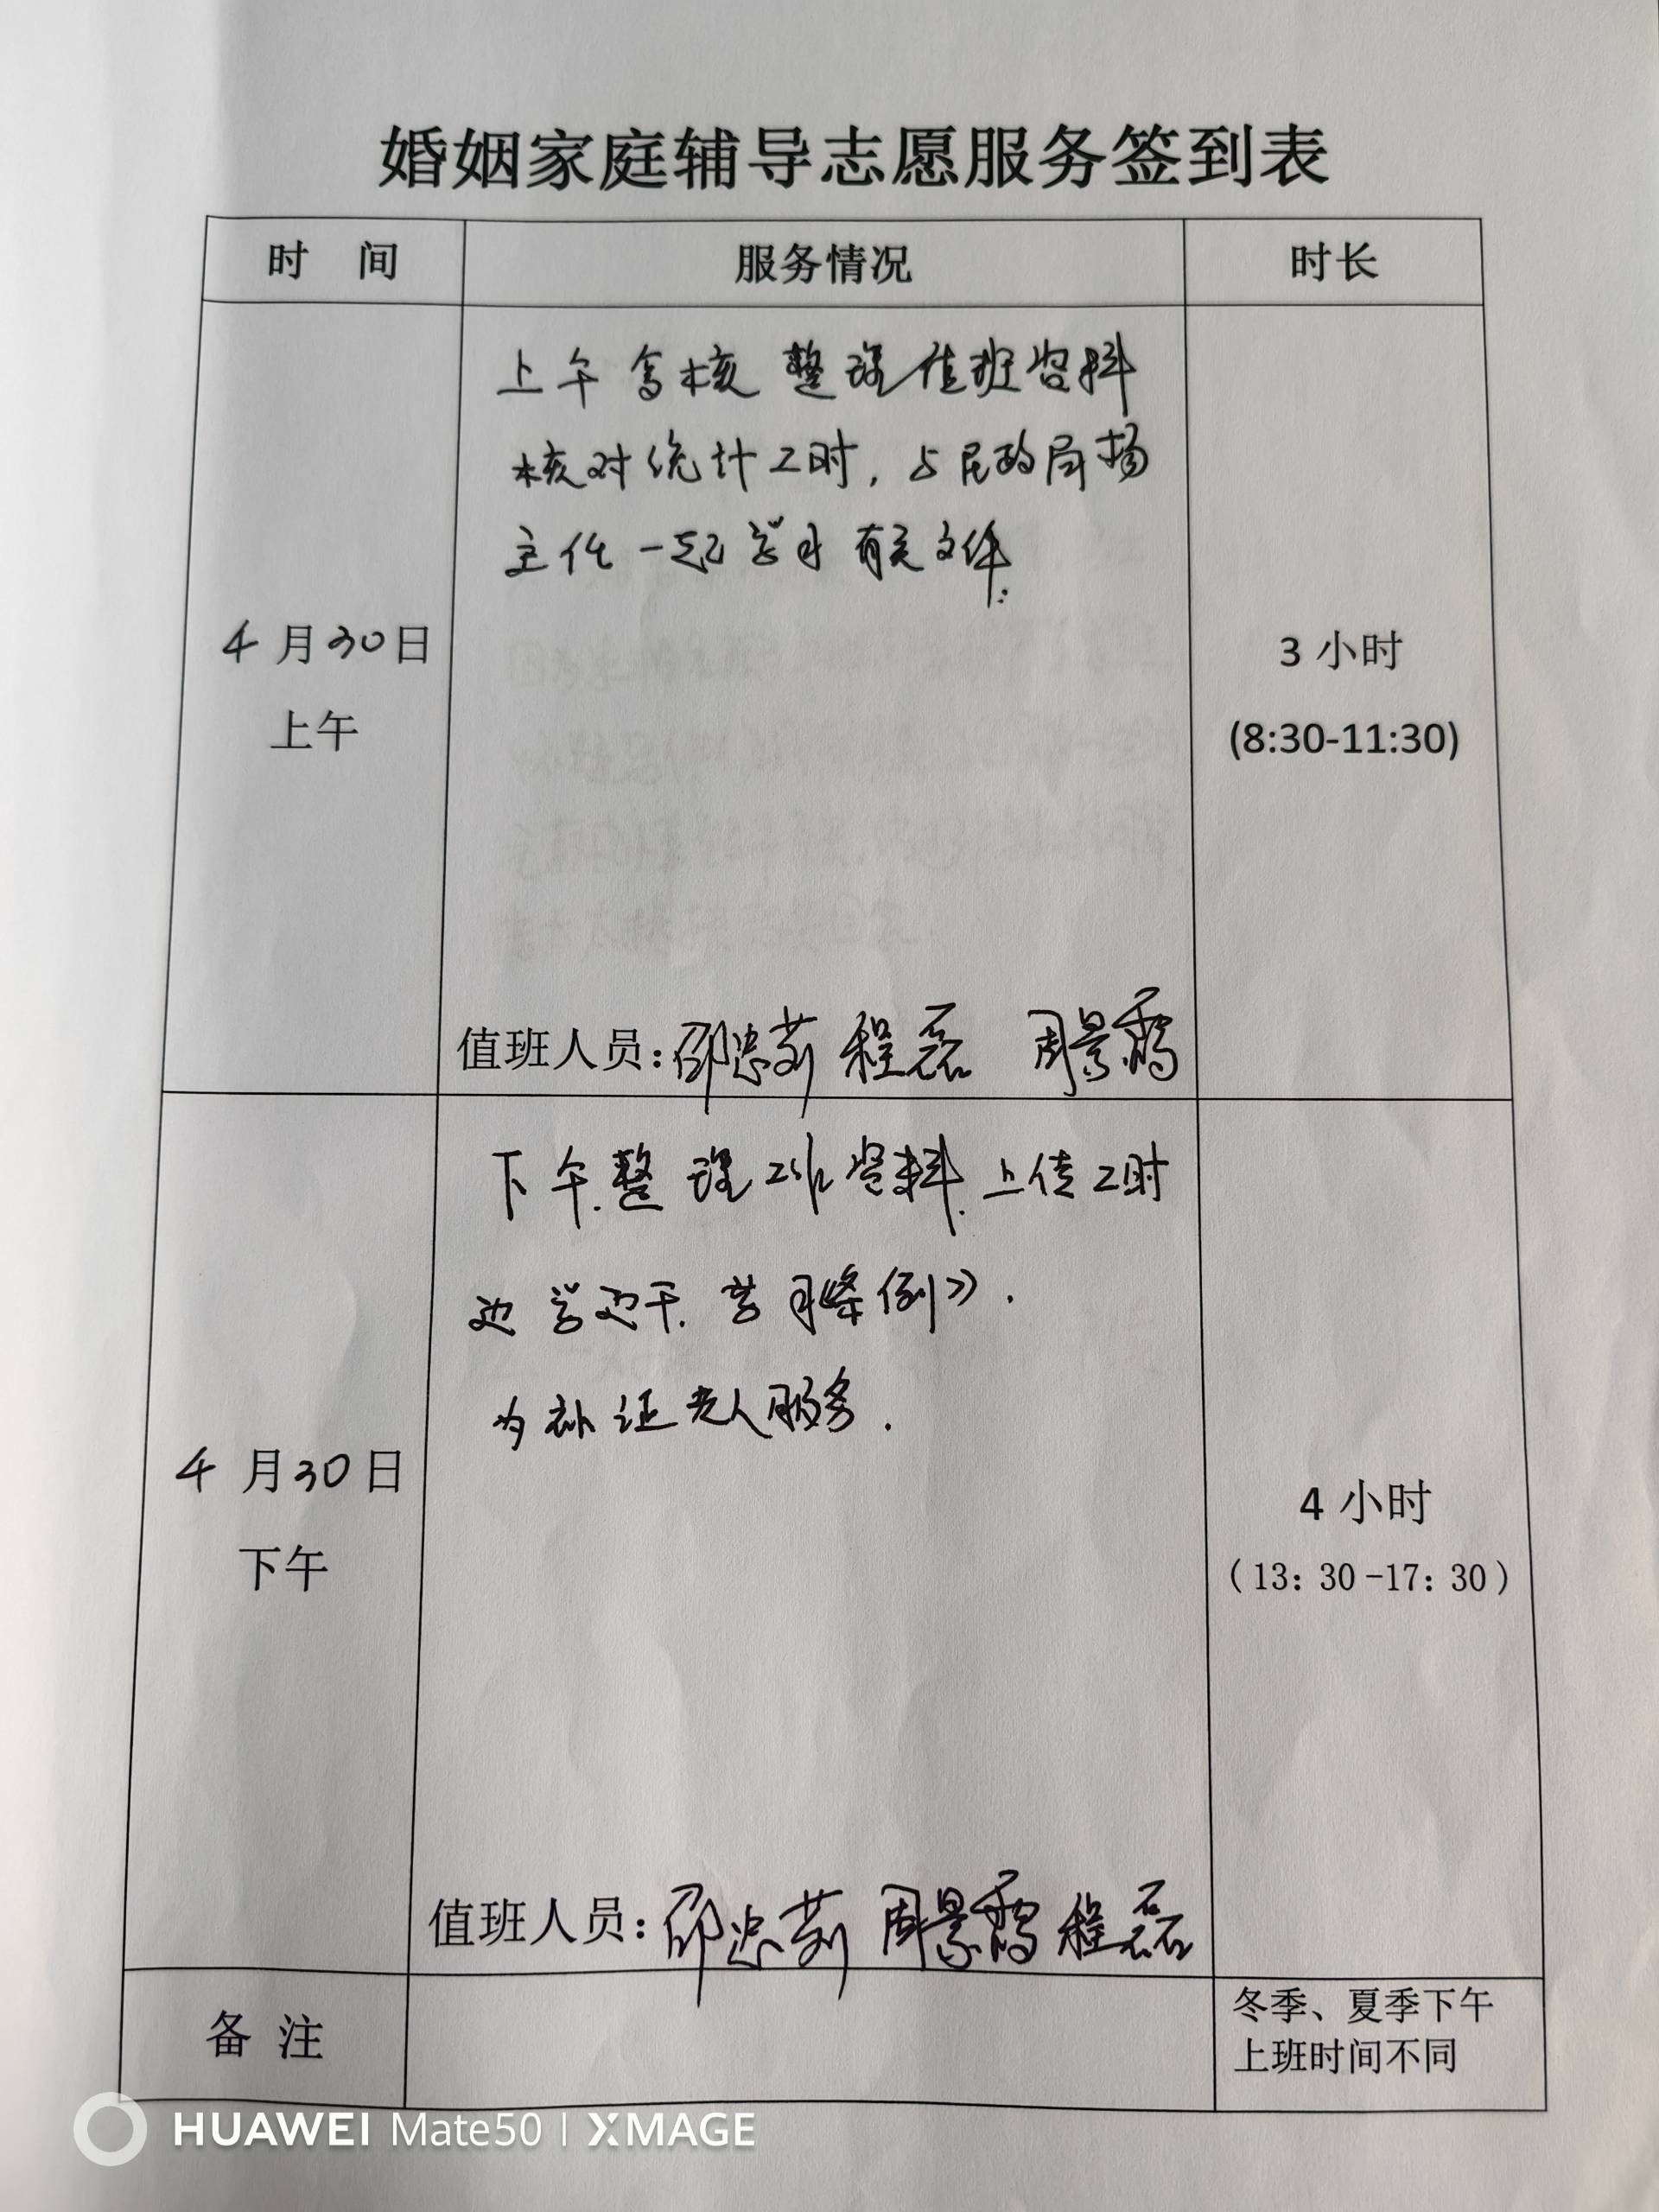 婚姻家庭辅导志愿服务签到表
时 间 服务情况 时长
上午 核 整理值班资料
核对统计工时，与民政局杨
主任一起学习有关文件.
4月30日
上午
3小时
(8:30-11:30)
值班人员：邵忠莉 程磊 周景
下午.整理工作资料.上传工时
边学边干. 学习《条例》.
为补证老人服务.
4月30日
下午
4小时
（13：30-17：30）
值班人员：邵忠莉 周景 程磊
备 注
冬季、夏季下午
上班时间不同
HUAWEI Mate50 | XMAGE